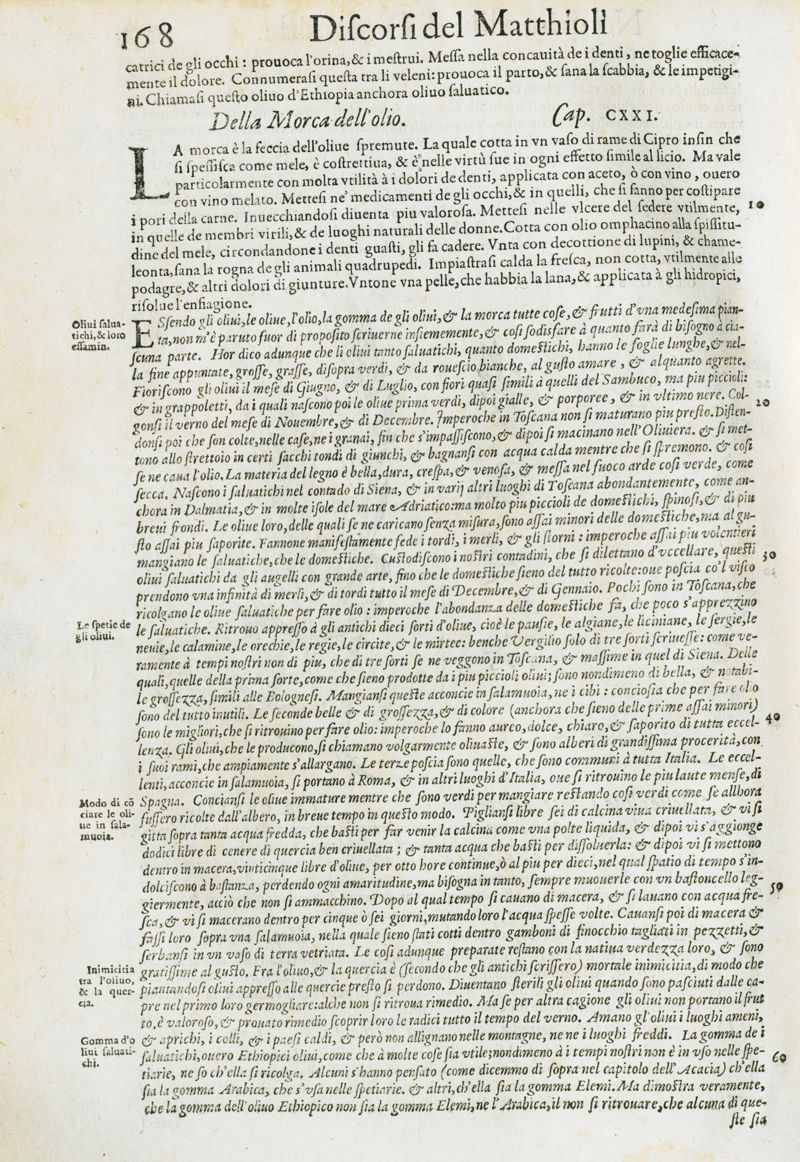 168
Discorsi del Matthioli
catrici de gli occhi : prouoca l'orina,& i mestrui. Messa nella concauità de i denti , ne toglie efficace-
mente il dolore. Connumerasi questa tra li veleni: prouoca il parto,& sana la scabbia, & le impetigi-
ni. Chiamasi questo oliuo d'Ethiopia anchora oliuo saluatico.
Della Morca dell'olio. Cap. CXXI.
LA morca è la feccia dell'oliue spremute. La quale cotta in vn vaso di rame di Cipro insin che
si spessisca come mele, è costrettiua, & è nelle virtù sue in ogni effetto simile al licio. Ma vale
particolarmente con molta vtilità à i dolori de denti, applicata con aceto, ò con vino , ouero
con vino melato. Mettesi ne' medicamenti de gli occhi,& in quelli, che si fanno per costipare
i pori della carne. Inuecchiandosi diuenta piu valorosa. Mettesi nelle vlcere del sedere vtilmente, 10
in quelle de membri virili,& de luoghi naturali delle donne. Cotta con olio omphacino alla spissitu-
dine del mele, circondandone i denti guasti, gli fa cadere. Vnta con decottione di lupini, & chame-
leonta, sana la rogna de gli animali quadrupedi. Impiastrasi calda la fresca, non cotta, vtilmente alle
podagre,& altri dolori di giunture. Vntone vna pelle, che habbia la lana,& applicata à gli hidropici,
risolue l'enfiagione.
Oliui salua-
tichi, & loro
essamin.
ESsendo gli oliui, le oliue, l'olio, la gomma de gli oliui, & la morca tutte cose, & frutti d'vna medesima pian-
ta, non m'è paruto fuor di proposito scriuerne insiememente, & cosi sodisfare à quanto farà di bisogno à cia-
scuna parte. Hor dico adunque che li oliui tanto saluatichi, quanto domestichi, hanno le foglie lunghe,& nel-
la fine appuntate, grosse, grasse, disopra verdi, & da rouescio bianche, al gusto amare , & alquanto agrette.
Fioriscono gli oliui il mese di Giugno, & di Luglio, con fiori quasi simili à quelli del Sambuco, ma piu piccioli:
& in grappoletti, da i quali nascono poi le oliue prima verdi, dipoi gialle, & porporee, & in vltimo nere. Col- 20
gonsi il verno del mese di Nouembre,& di Decembre. Imperoche in Toscana non si maturano piu presto. Disten-
donsi poi che son colte, nelle case, ne i granai, fin che s'impassiscono,& dipoi si macinano nell'Oliuiera. & si met-
tono allo strettoio in certi sacchi tondi di giunchi, & bagnansi con acqua calda mentre che si spremono. & cosi
se ne caua l'olio. La materia del legno è bella, dura, crespa,& venosa, & messa nel fuoco arde cosi verde, come
secca. Nascono i saluatichi nel contado di Siena, & in varij altri luoghi di Toscana abondantemente, come an-
chora in Dalmatia,& in molte isole del mare Adriatico: ma molto piu piccioli de domestichi, spinosi,& di piu
breui frondi. Le oliue loro, delle quali se ne caricano senza misura, sono assai minori delle domestiche, ma al gu-
sto assai piu saporite. Fannone manifestamente fede i tordi, i merli, & gli storni : imperoche assai piu volentieri
mangiano le saluatiche, che le domestiche. Custodiscono i nostri contadini, che si dilettano d'vccellare, questi 30
oliui saluatichi da gli augelli con grande arte, fino che le domestiche sieno del tutto ricolte: oue poscia co'l visco
prendono vna infinità di merli,& di tordi tutto il mese di Decembre, & di Gennaio. Pochi sono in Toscana, che
ricolgano le oliue saluatiche per fare olio : imperoche l'abondanza delle domestiche fa, che poco s'apprezzino
Le spetie de
gli oliui.
le saluatiche. Ritrouo appresso à gli antichi dieci sorti d'oliue, cioè le pausie, le algiane, le liciniane, le sergie, le
neuie, le calamine, le orechie, le regie, le circite,& le mirtee: benche Vergilio solo di tre sorti scriuesse: come ve-
ramente à tempi nostri non di piu, che di tre sorti se ne veggono in Toscana, & massime in quel di Siena. Delle
quali, quelle della prima sorte, come che sieno prodotte da i piu piccioli oliui; sono nondimeno di bella, & notabi-
le grossezza, simili alle Bolognesi. Mangiansi queste acconcie in salamuoia, ne i cibi : conciosia che per fare olio
sono del tutto inutili. Le seconde belle & di grossezza,& di colore (anchora che sieno delle prime assai minori)
sono le migliori, che si ritrouino per fare olio: imperoche lo fanno aureo, dolce, chiaro,& saporito di tutta eccel- 40
lenza. Gli oliui, che le producono, si chiamano volgarmente oliuaste, & sono alberi di grandissima procerità, con
i suoi rami, che ampiamente s'allargano. Le terze poscia sono quelle, che sono communi à tutta Italia. Le eccel-
lenti, acconcie in salamuoia, si portano à Roma, & in altri luoghi d'Italia, oue si ritrouino le piu laute mense, di
Modo di cō
ciare le oli-
ue in sala-
muoia.
Spagna. Concianfi le oliue immature mentre che sono verdi per mangiare restando cosi verdi come se allhora
fussero ricolte dall'albero, in breue tempo in questo modo. Piglianfi libre sei di calcina viua criuellata, & vi si
gitta sopra tanta acqua fredda, che basti per far venir la calcina come vna polte liquida, & dipoi vi s'aggionge
dodici libre di cenere di quercia ben criuellata ; & tanta acqua che basti per dissoluerla: & dipoi vi si mettono
dentro in macera, vinticinque libre d'oliue, per otto hore continue, ò al piu per dieci, nel qual spatio di tempo s'in-
dolciscono à bastanza, perdendo ogni amaritudine, ma bisogna in tanto, sempre muouerle con vn bastoncello leg-
giermente, acciò che non si ammacchino. Dopo al qual tempo si cauano di macera, & si lauano con acqua fre- 50
sca,& vi si macerano dentro per cinque ò sei giorni, mutando loro l'acqua spesse volte. Cauansi poi di macera &
fassi loro sopra vna salamuoia, nella quale sieno stati cotti dentro gamboni di finocchio tagliati in pezzetti,&
serbansi in vn vaso di terra vetriata. Le cosi adunque preparate restano con la natiua verdezza loro, & sono
Inimicitia
tra l'oliuo,
& la quer-
cia.
gratissime al gusto. Fra l'oliuo,& la quercia è (secondo che gli antichi scrissero) mortale inimicitia, di modo che
piantandosi oliui appresso alle quercie presto si perdono. Diuentano sterili gli oliui quando sono pasciuti dalle ca-
pre nel primo loro germogliare: alche non si ritroua rimedio. Ma se per altra cagione gli oliui non portano il frut
to, è valoroso,& prouato rimedio scoprir loro le radici tutto il tempo del verno. Amano gl'oliui i luoghi ameni,
Gomma d'o
liui saluati-
chi.
& aprichi, i colli, & i paesi caldi, & però non allignano nelle montagne, ne ne i luoghi freddi. La gomma de i
saluatichi, ouero Ethiopici oliui, come che à molte cose sia vtile; nondimeno à i tempi nostri non è in vso nelle spe- 60
tiarie, ne so ch'ella si ricolga. Alcuni s'hanno pensato (come dicemmo di sopra nel capitolo dell'Acacia) ch'ella
sia la gomma Arabica, che s'vsa nelle spetiarie. & altri, ch'ella sia la gomma Elemi. Ma dimostra veramente,
che la gomma dell'oliuo Ethiopico non sia la gomma Elemi, ne l'Arabica, il non si ritrouare, che alcuna di que-
ste sia